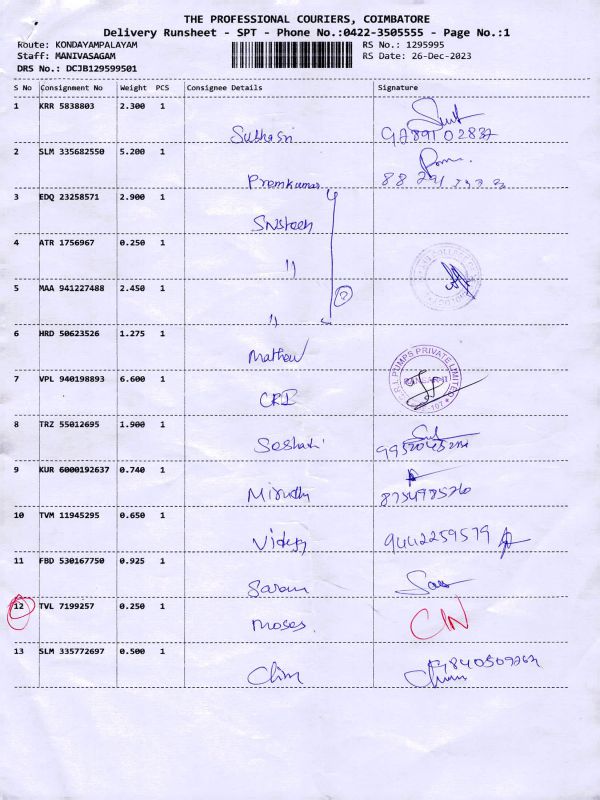 THE PROFESSIONAL COURIERS, COIMBATORE
Delivery Runsheet - SPT - Phone No.:0422-3505555 - Page No.:1
Route: KONDAYAMPALAYAM RS No.: 1295995
Staff: MANIVASAGAM RS Date: 26-Dec-2023
DRS No.: DCJB129599501
S No Consignment No Weight PCS Consignee Details Signature
1 KRR 5838803 2.300 1
2 SLM 335682550 5.200 1
Premkumar
3 EDQ 23258571 2.900 1
4 ATR 1756967 0.250 1
"
5 MAA 941227488 2.450 1
"
6 HRD 50623526 1.275 1
Mathew
7 VPL 940198893 6.600 1
C.R.I. PUMPS PRIVATE LIMITED
CRI
8 TRZ 55012695 1.900 1
9 KUR 6000192637 0.740 1
10 TVM 11945295 0.650 1
9442259579
11 FBD 530167750 0.925 1
12 TVL 7199257 0.250 1
Moses CIN
13 SLM 335772697 0.500 1